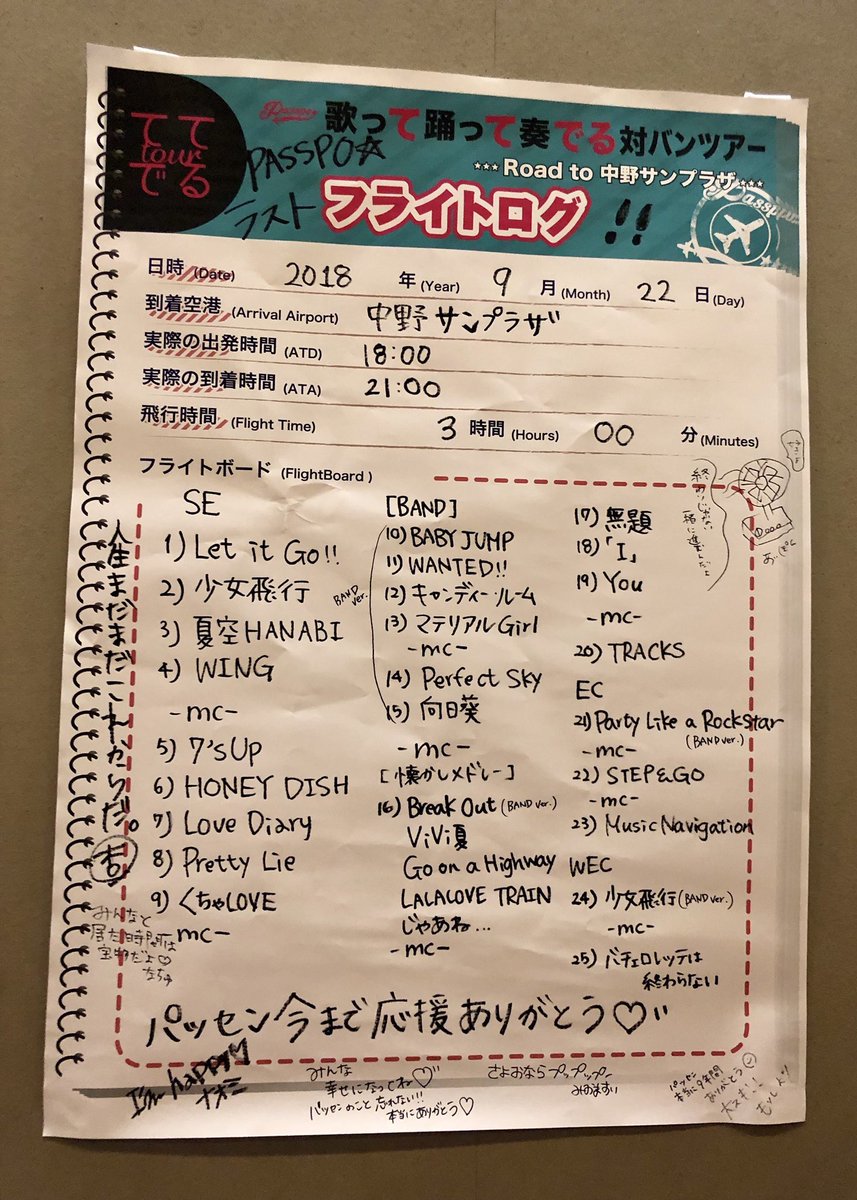 てて
tour
でる
Passpo
歌って踊って奏でる対バンツアー
PASSPO☆
•••Road to 中野サンプラザ•••
ラスト フライトログ !!
日時 (Date) 2018 年 (Year) 9 月 (Month) 22 日 (Day)
到着空港 (Arrival Airport) 中野サンプラザ
実際の出発時間 (ATD) 18:00
実際の到着時間 (ATA) 21:00
飛行時間 (Flight Time) 3 時間 (Hours) 00 分 (Minutes)
フライトボード (FlightBoard)
SE
1) Let it Go!!
2) 少女飛行
3) 夏空HANABI
4) WING
-mc-
5) 7'sUp
6) HONEY DISH
7) Love Diary
8) Pretty Lie
9) くちゃLOVE
-mc-
[BAND]
BAND ver.
10) BABY JUMP
11) WANTED!!
12) キャンディー・ルーム
13) マテリアルGirl
-mc-
14) Perfect Sky
15) 向日葵
-mc-
[懐かしメドレー]
16) Break Out (BAND ver.)
ViVi夏
Go on a Highway
LALALOVE TRAIN
じゃあね...
-mc-
17) 無題
18) 「I」
19) You
-mc-
20) TRACKS
EC
21) Party Like a Rockstar
(BAND ver.)
-mc-
22) STEP&GO
-mc-
23) Music Navigation
WEC
24) 少女飛行 (BAND ver.)
-mc-
25) バチェロレッテは
終わらない
人生まだまだこれからだ。
みんなと
居た時間は
宝物だよ♡
パッセン今まで応援ありがとう♡
I'm happy♡
ナオミ
みんな
幸せになってね♡
パッセンのこと忘れない!!
本当にありがとう♡
さよおならプップップー
みおますい
パッセン
本当に9年間
ありがとう
大スキ!!